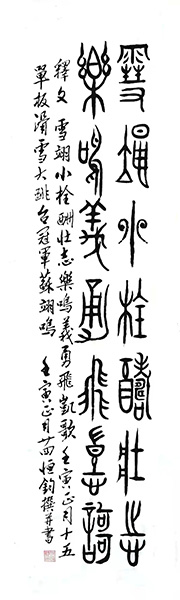 雪翊小栓酬壯志
樂鳴義勇飛凱歌
釋文 雪翊小栓酬壯志 樂鳴義勇飛凱歌 壬寅正月十五
單板滑雪大跳台冠軍蘇翊鳴 壬寅正月廿四恒鈞撰并書